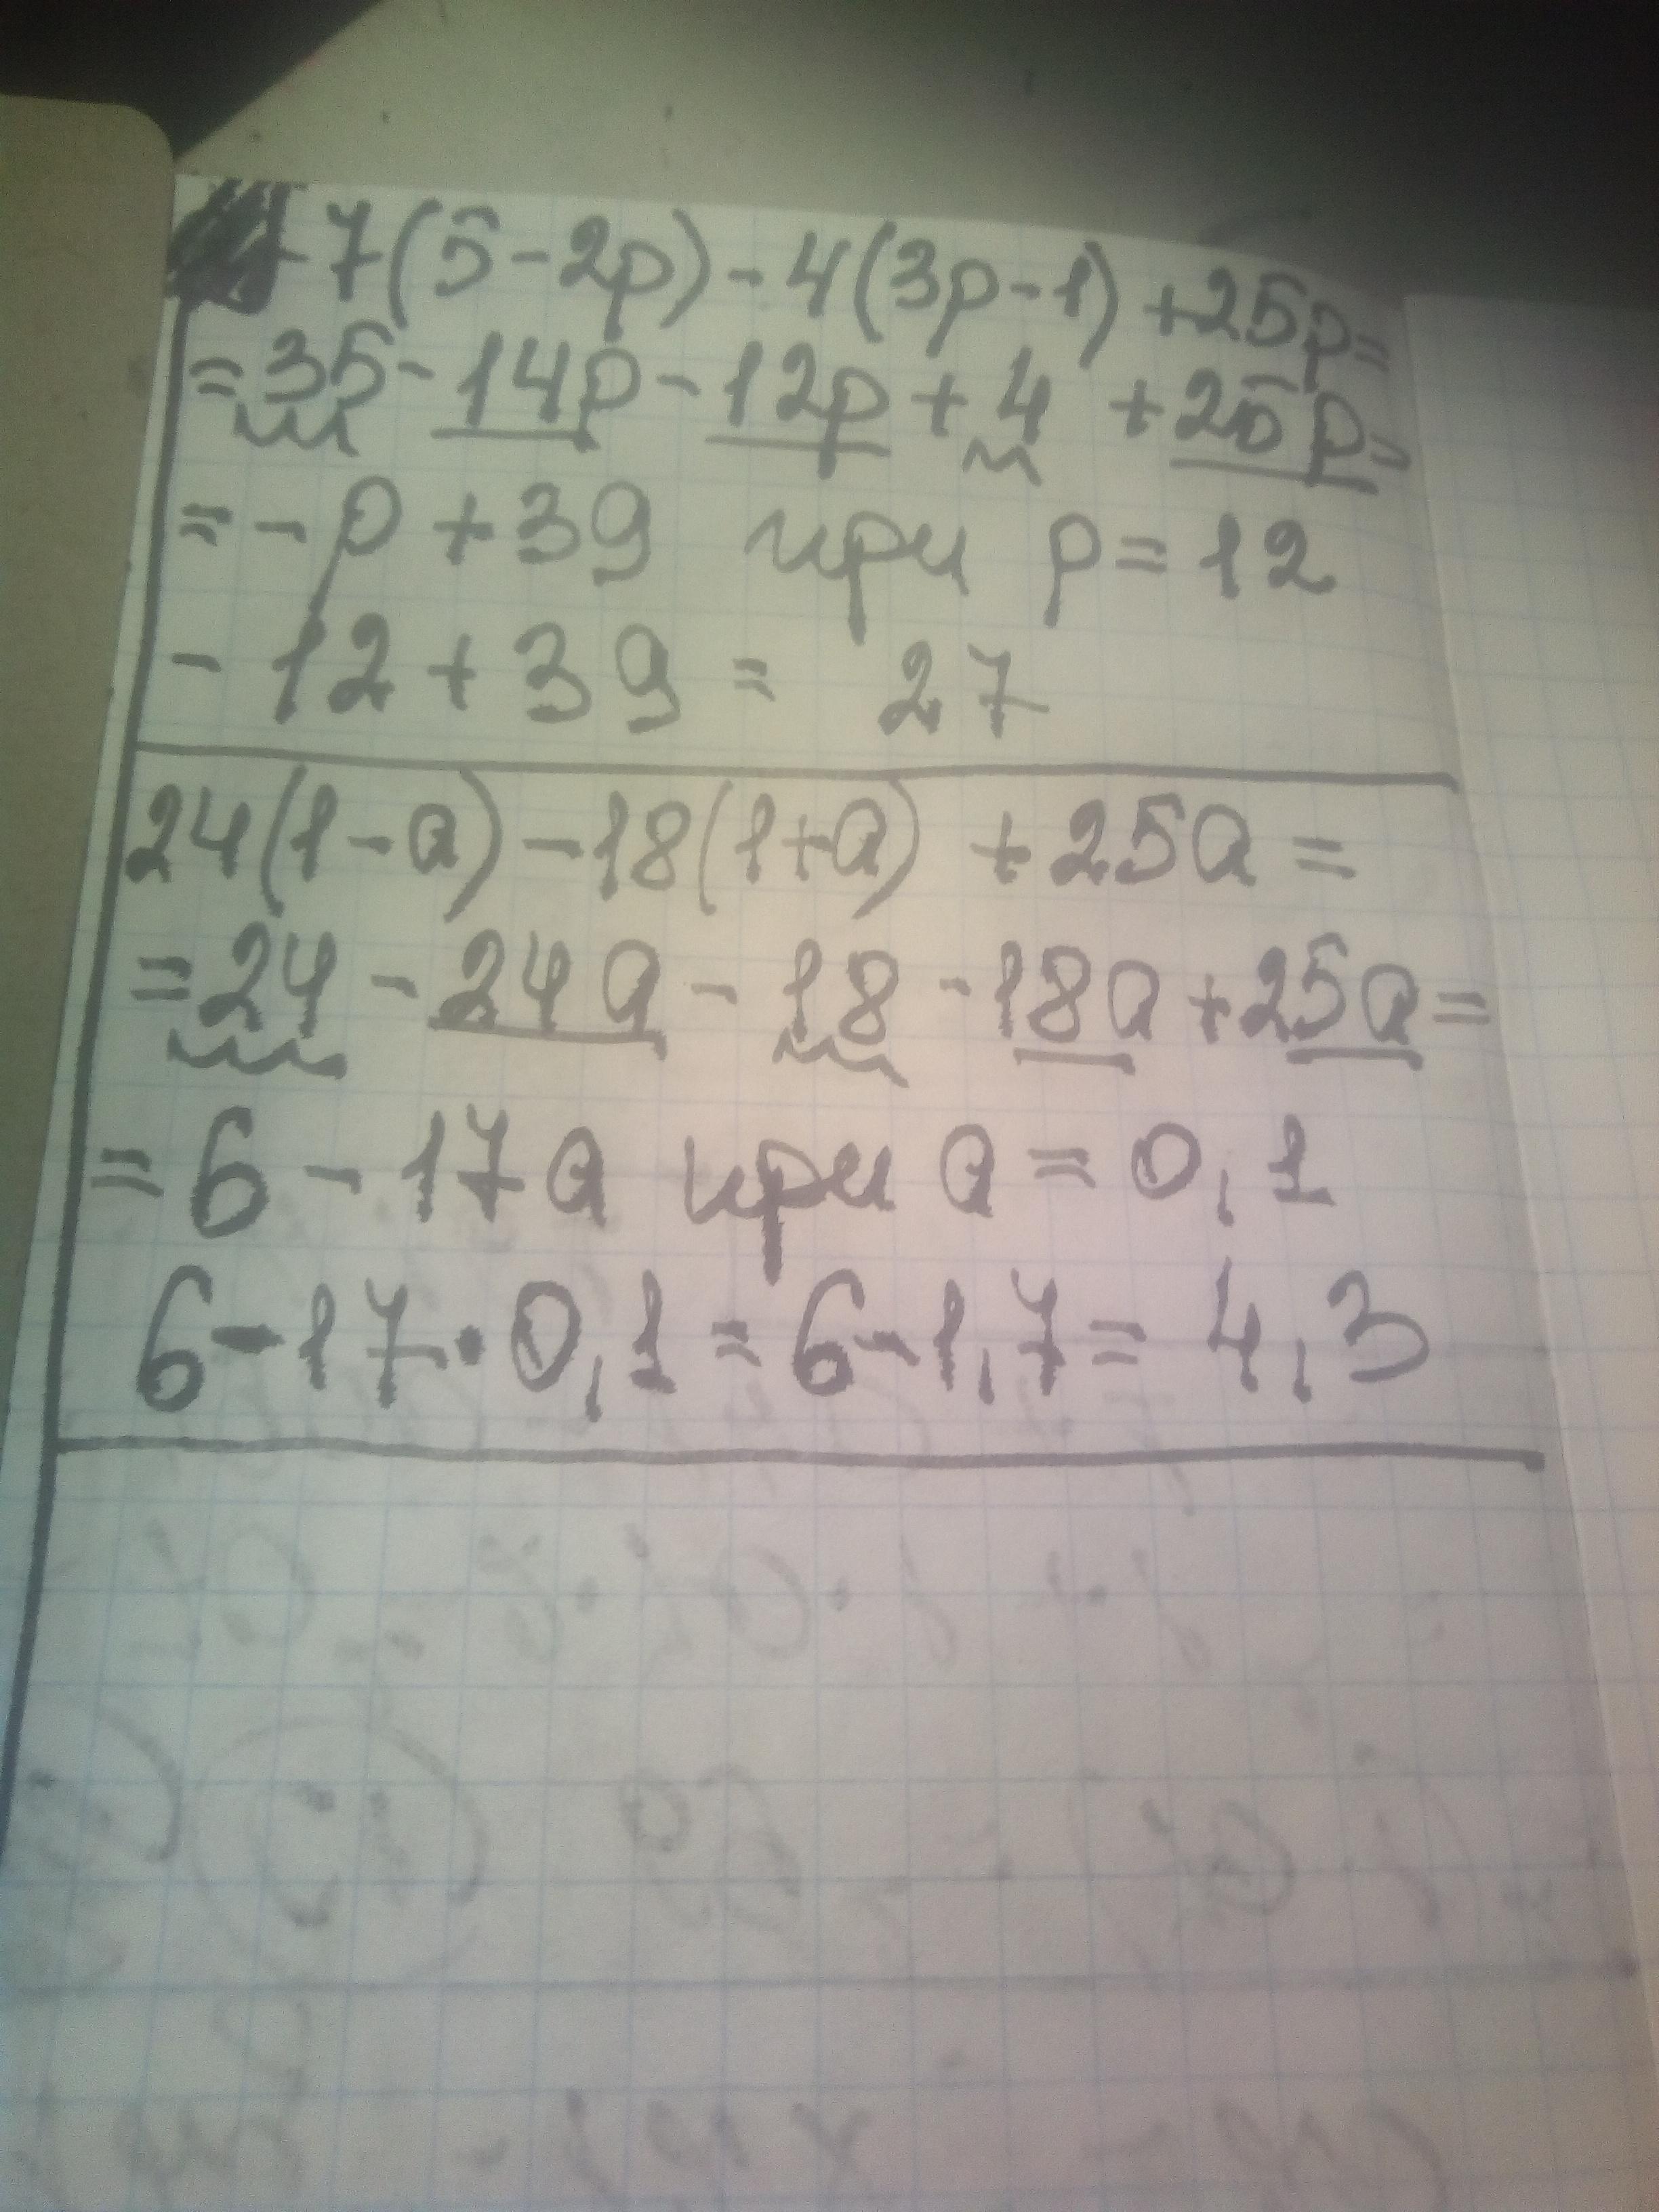 7(5-2p)-4(3p-1)+25p=
=35-14p-12p+4+25p=
=-p+39 при p=12
-12+39= 27
24(1-a)-18(1+a)+25a=
=24-24a-18-18a+25a=
=6-17a при a=0,1
6-17·0,1=6-1,7=4,3